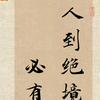 人到绝境
必有